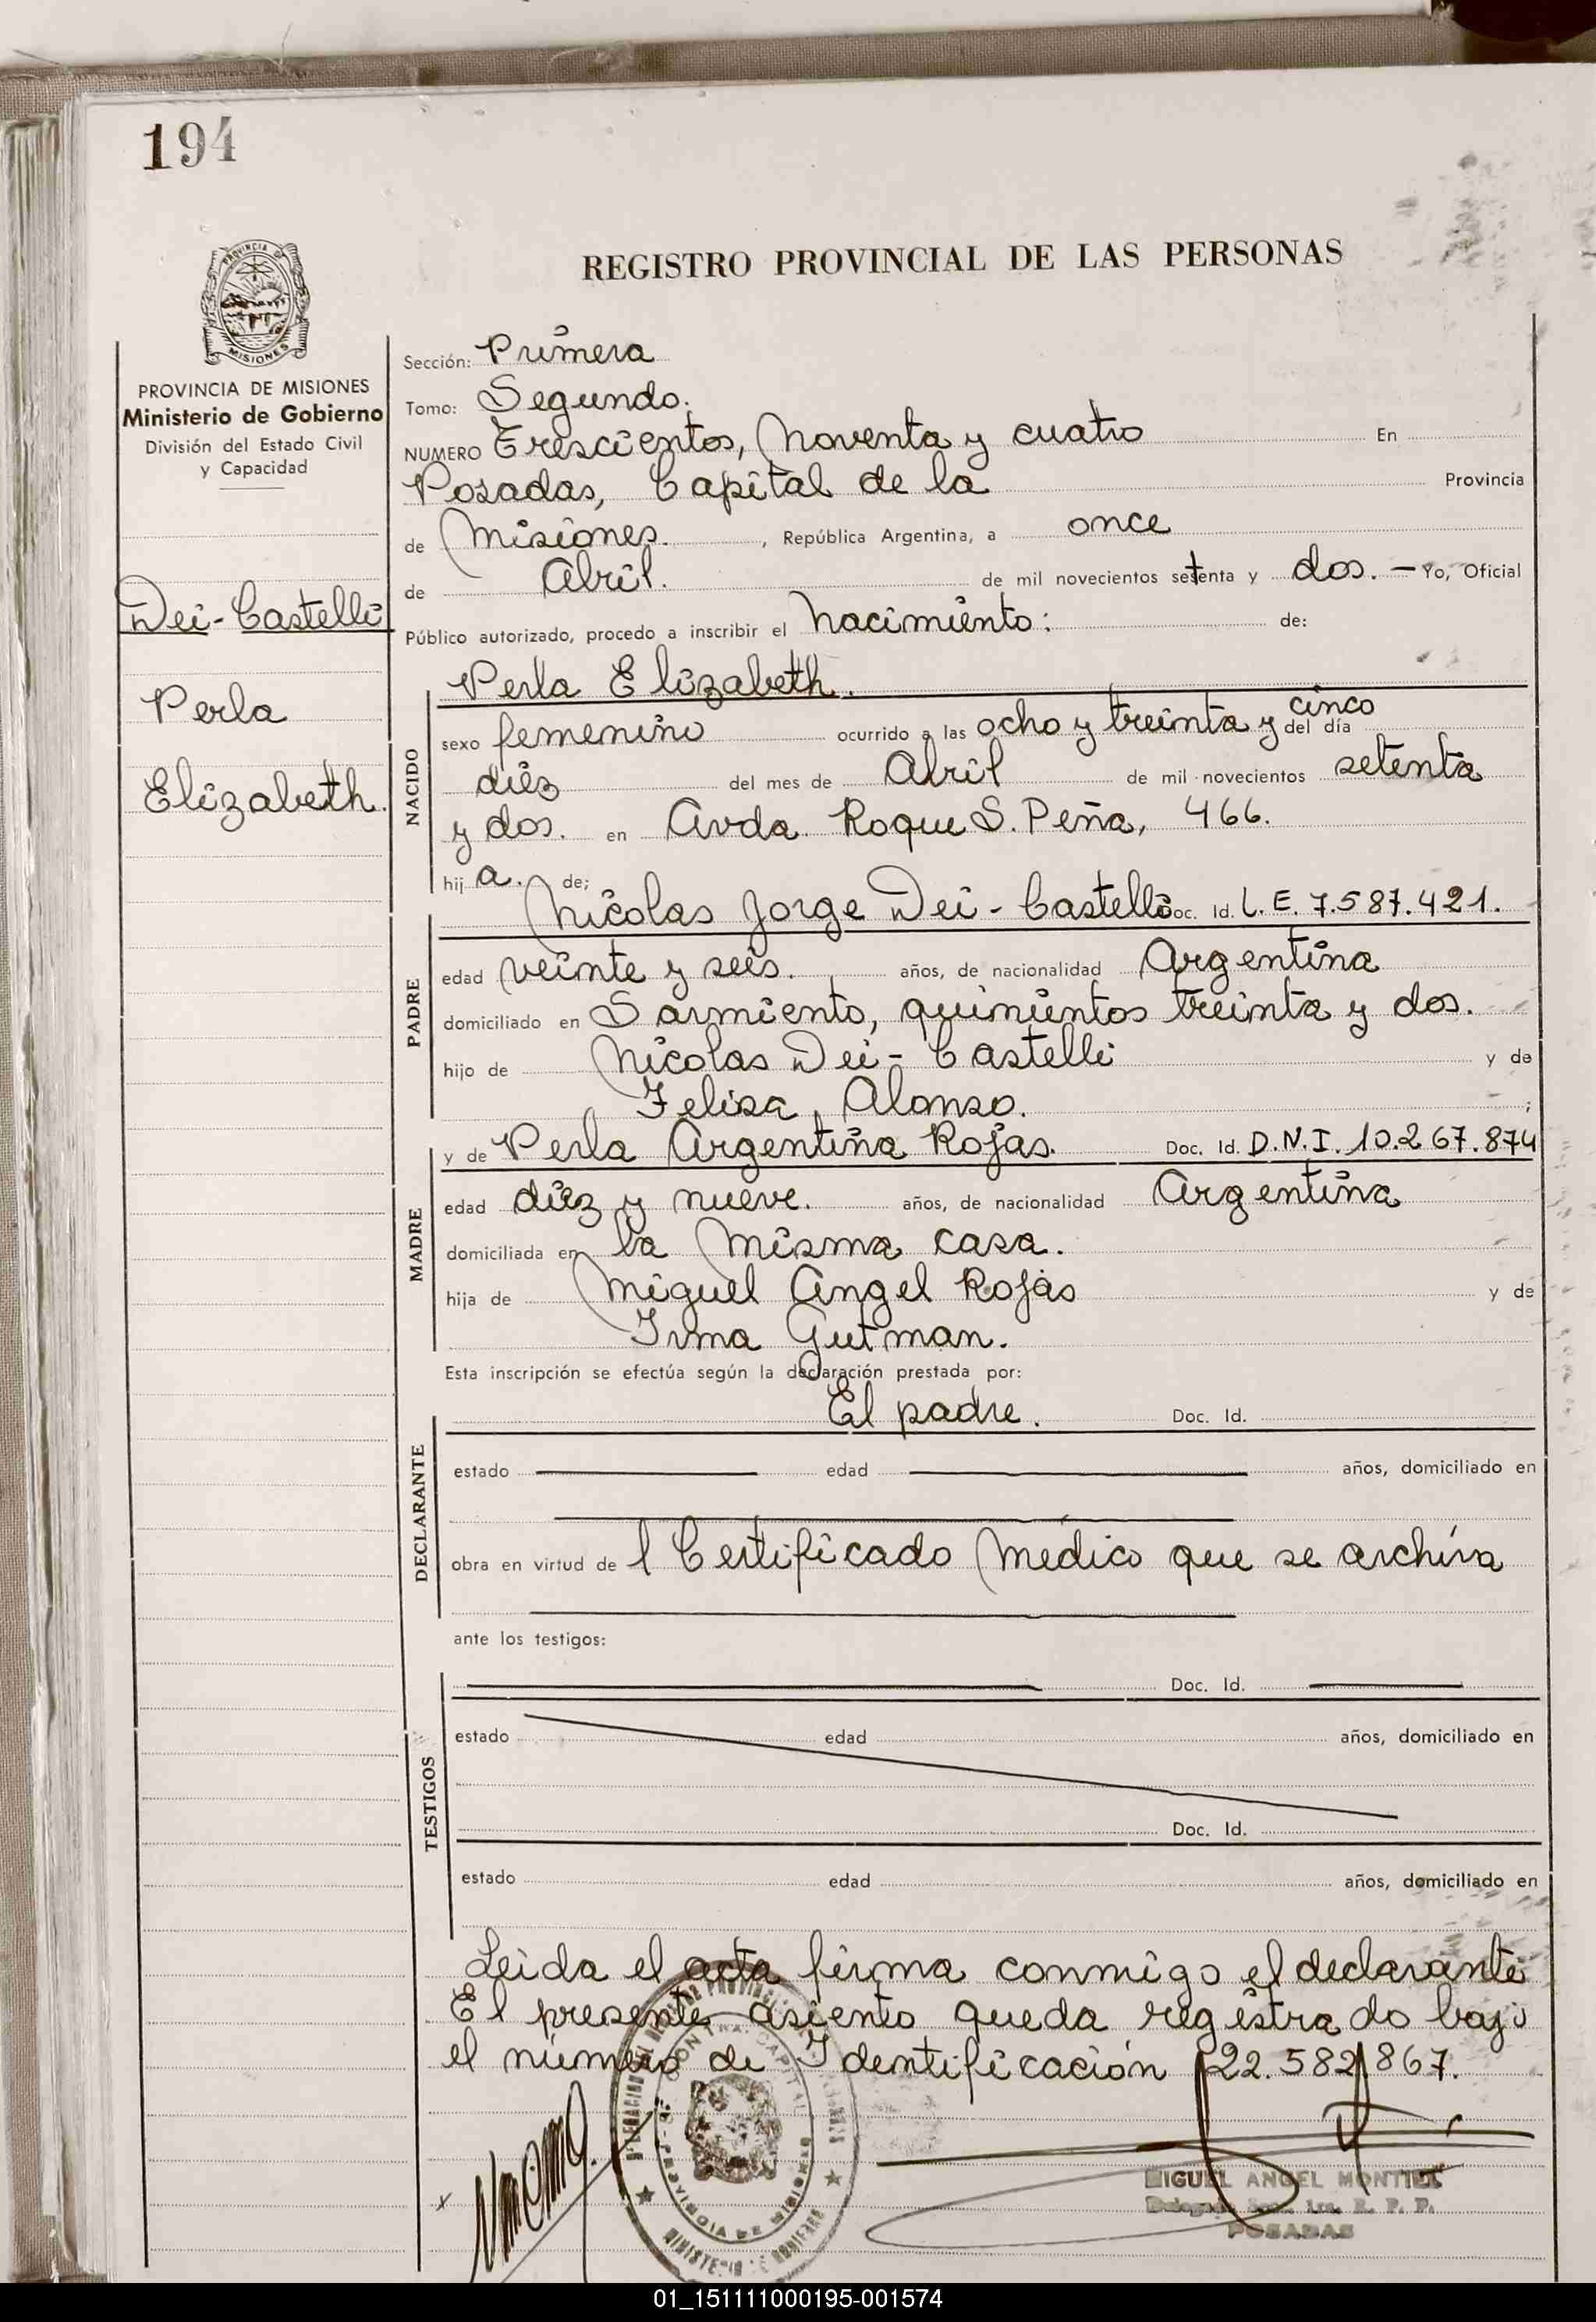 194
PROVINCIA DE
MISIONES
REGISTRO PROVINCIAL DE LAS PERSONAS
PROVINCIA DE MISIONES
Ministerio de Gobierno
División del Estado Civil
y Capacidad
Dei-Castelli
Perla
Elizabeth.
Sección: Primera
Tomo: Segundo.
NUMERO Trescientos, Noventa y cuatro En
Posadas, Capital de la Provincia
de Misiones. , República Argentina, a once
de Abril. de mil novecientos setenta y dos. — Yo, Oficial
Público autorizado, procedo a inscribir el Nacimiento: de:
NACIDO
Perla Elizabeth.
sexo femenino ocurrido a las ocho y treinta y cinco del día
diez del mes de Abril de mil novecientos setenta
y dos. en Avda Roque S. Peña, 466.
hij a. de;
PADRE
Nicolas Jorge Dei-Castelli Doc. Id. L.E. 7.587.421.
edad veinte y seis. años, de nacionalidad Argentina
domiciliado en Sarmiento, quinientos treinta y dos.
hijo de Nicolas Dei-Castelli y de
Felisa, Alonso. ;
MADRE
y de Perla Argentina Rojas. Doc. Id. D.N.I. 10.267.874
edad diez y nueve. años, de nacionalidad Argentina
domiciliada en la misma casa.
hija de Miguel Angel Rojas y de
Irma Gutman.
Esta inscripción se efectúa según la declaración prestada por:
DECLARANTE
El padre. Doc. Id.
estado edad años, domiciliado en
obra en virtud de l Certificado Médico que se archiva
ante los testigos:
TESTIGOS
Doc. Id.
estado edad años, domiciliado en
Doc. Id.
estado edad años, domiciliado en
Leida el acta firma conmigo el declarante
El presente asiento queda registrado bajo
el número de Identificación 22.582.867.
PROVINCIA DE MISIONES
MINISTERIO DE GOBIERNO
MIGUEL ANGEL MONTIEL
POSADAS
01_151111000195-001574